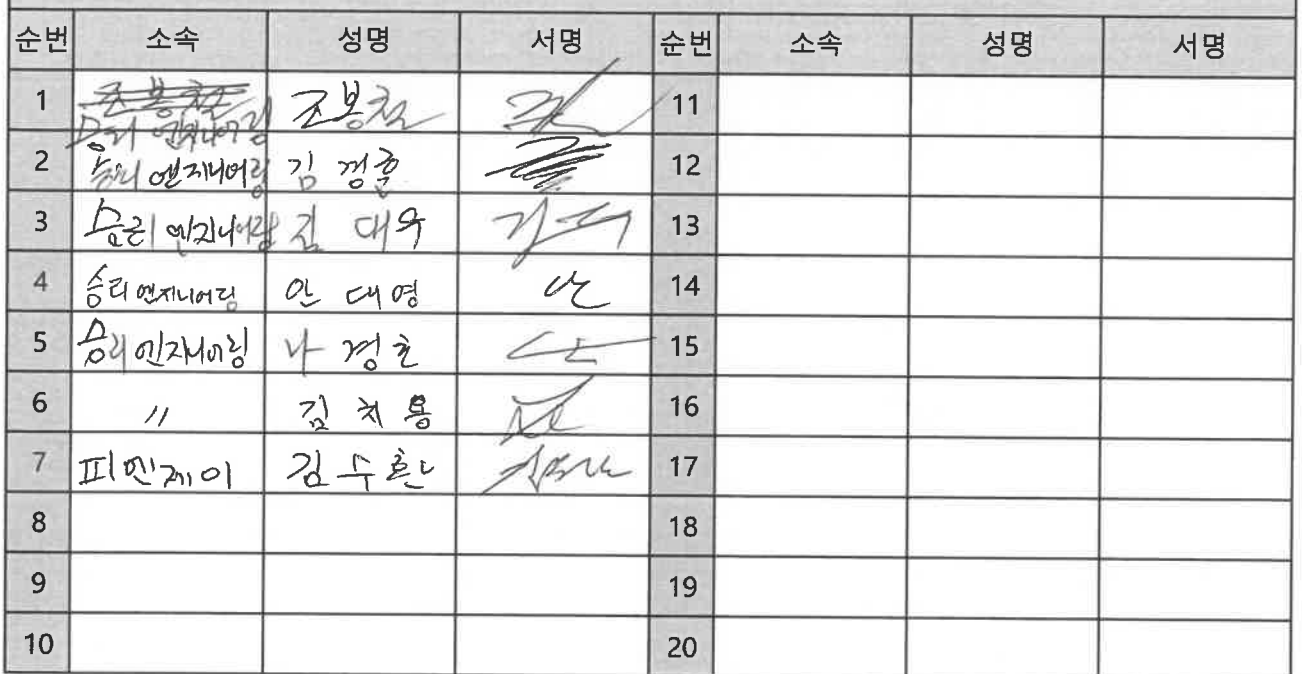 순번 소속 성명 서명 순번 소속 성명 서명
1 조봉철 조봉철 11
승리 엔지니어링
2 승리 엔지니어링 김경훈 12
3 승리 엔지니어링 김대우 13
4 승리엔지니어링 안대영 14
5 승리엔지니어링 나경호 15
6 〃 김치용 16
7 피엔제이 김수환 17
8 18
9 19
10 20